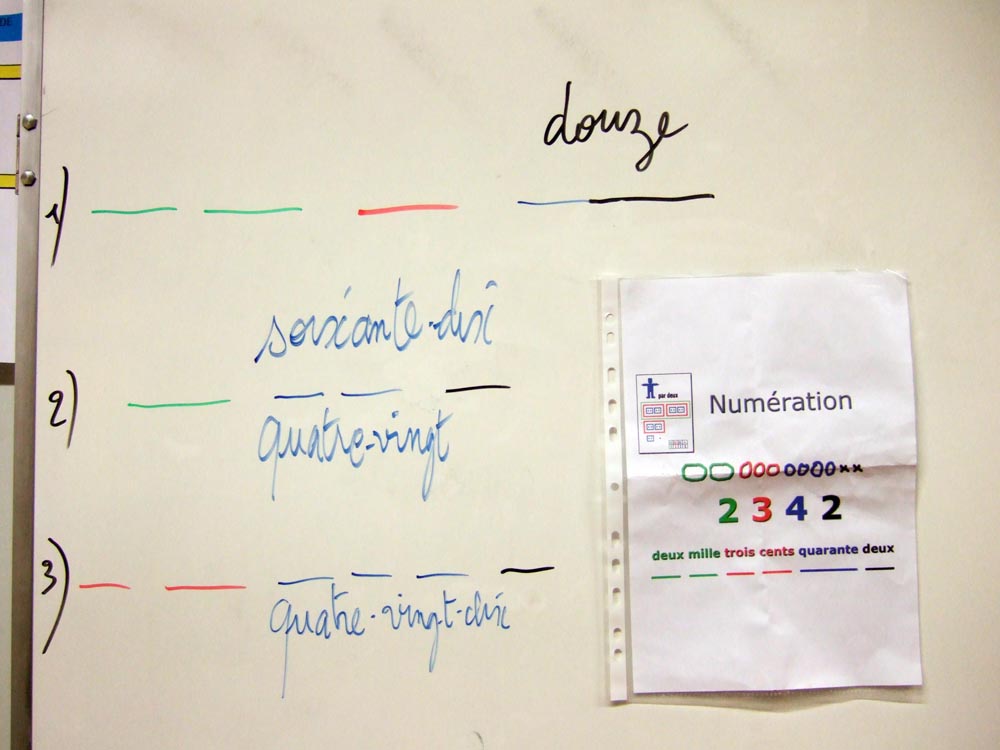 douze
1)
soixante-dix
2)
quatre-vingt
3)
quatre-vingt-dix
par deux
Numération
2 3 4 2
deux mille trois cents quarante deux